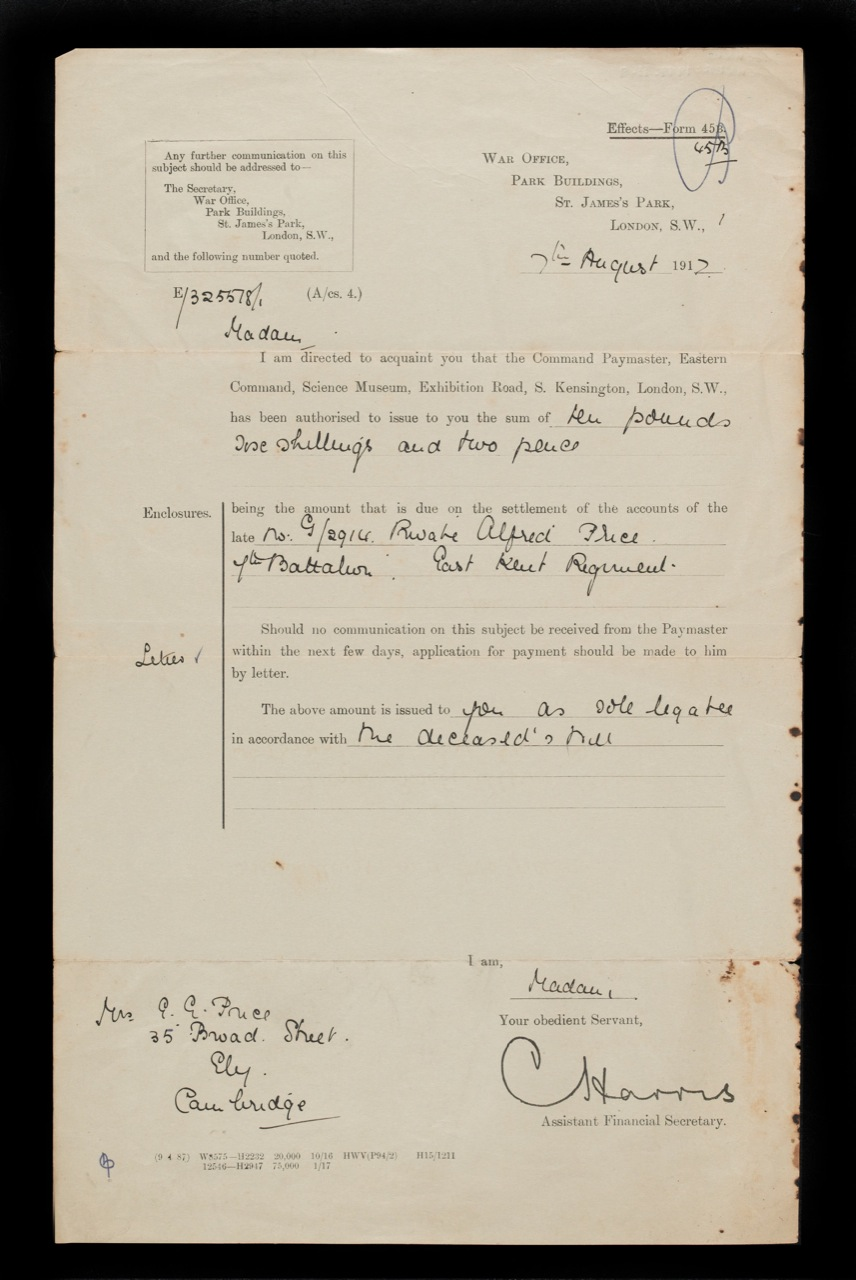 Effects—Form 45B.
45B
Any further communication on this
subject should be addressed to—
The Secretary,
War Office,
Park Buildings,
St. James's Park,
London, S.W.,
and the following number quoted.
WAR OFFICE,
PARK BUILDINGS,
ST. JAMES'S PARK,
LONDON, S.W., 1
7th August 1917
E/325578/1 (A/cs. 4.)
Madam
I am directed to acquaint you that the Command Paymaster, Eastern
Command, Science Museum, Exhibition Road, S. Kensington, London, S.W.,
has been authorised to issue to you the sum of ten pounds
shillings and two pence
Enclosures.
being the amount that is due on the settlement of the accounts of the
late No. G/2914. Private Alfred Price.
7th Battalion. East Kent Regiment.
Should no communication on this subject be received from the Paymaster
within the next few days, application for payment should be made to him
by letter.
Letter
The above amount is issued to you as sole legatee
in accordance with the deceased's Will
I am,
Madam,
Your obedient Servant,
C Harris
Assistant Financial Secretary.
Mrs E. E. Price
35 Broad Street.
Ely.
Cambridge
(9 4 87) W8575—H2232 20,000 10/16 HWV(P94/2) H15/1211
12546—H2947 75,000 1/17